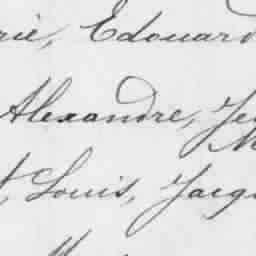 rie, Edouard
Alexandre, Je
Louis, Jacq